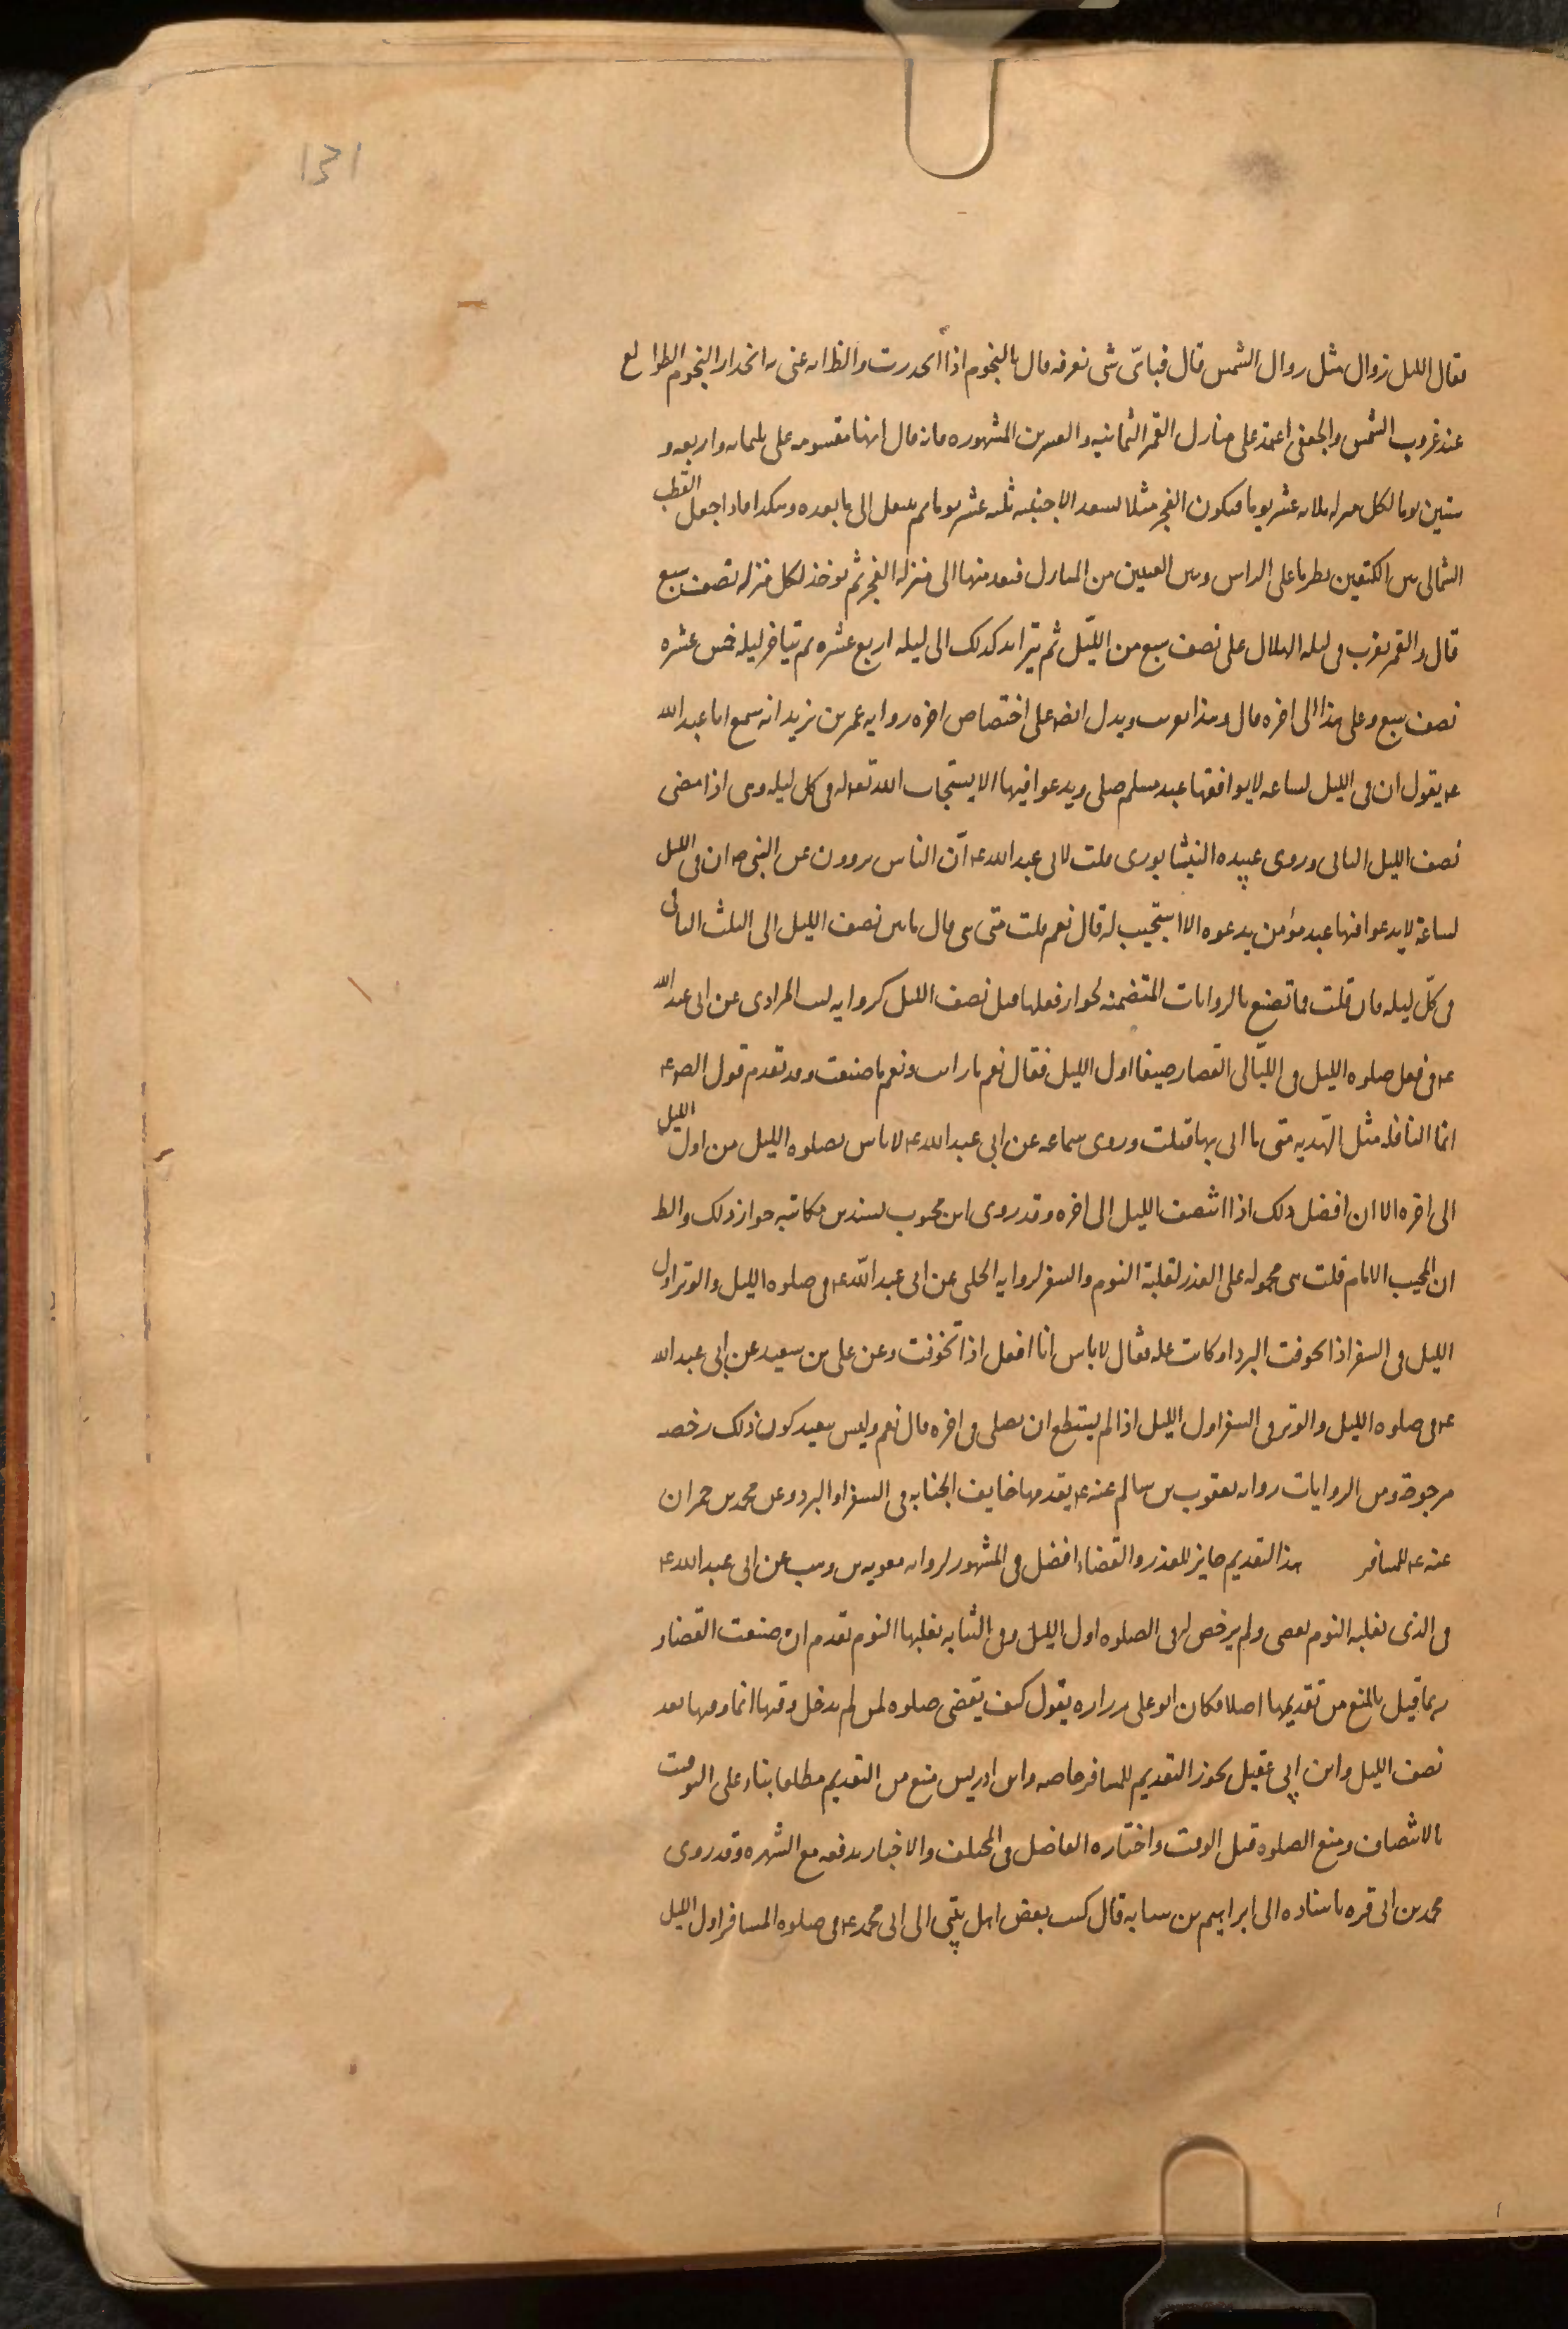 131
فقال الليل زوال مثل زوال الشمس قال فبأىّ شى نعرفه قال بالنجوم اذا انحدرت والظ انه عنى به انحدار النجوم الطوالع
عند غروب الشمس والجعفى اعتمد على منازل القمر الثمانيه والعشرين المشهوره فانه قال انها مقسومه على ثلثمائه واربعه و
ستين يوما لكل منزله ثلاثه عشر يوما فيكون الفجر مثلا بسعد الاخبيه ثلثه عشر يوما ثم ينتقل الى ما بعده وهكذا فاذا جعل القطب
الشمالى بين الكتفين نظر ما على الراس وبين العينين من المنازل فيعد منها الى منزله الفجر ثم يوخذ لكل منزله نصف سبع
قال والقمر يغرب فى ليله الهلال على نصف سبع من الليّل ثم يتزايد كذلك الى ليله اربع عشره ثم يتاخر ليله خمس عشره
نصف سبع وعلى هذا الى اخره قال وهذا تقريب ويدل ايضا على اختصاص اخره روايه عمر بن يزيد انه سمع ابا عبد الله
ع يقول ان فى الليل لساعه لا يوافقها عبد مسلم صلى ويدعوا فيها الا يستجاب الله تع له فى كل ليله وهى اذا مضى
نصف الليل الثانى وروى عبيده النيشابورى قلت لابى عبد الله ع انّ الناس يروون عن النبى ص ان فى الليل
لساعة لا يدعوا فيها عبد مؤمن بدعوه الا استجيب له قال نعم قلت متى هى قال ما بين نصف الليل الى الثلث الباقى
فى كلّ ليله فان قلت فما تصنع بالروايات المتضمنه لجواز فعلها قبل نصف الليل كروايه ليث المرادى عن ابى عبد الله
ع فى فعل صلوه الليل فى الليّالى القصار صيفا اول الليل فقال نعم ما رايت ونعم ما صنعت وقد تقدم قول الص ع
انما النافله مثل الهّديه متى ما اتى بها قبلت وروى سماعه عن ابى عبد الله ع لا باس بصلوه الليل من اول الليل
الى اخره الا ان افضل ذلك اذا انتصف الليل الى اخره وقد روى ابن محبوب بسندين مكاتبه جواز ذلك والظ
ان المجيب الامام قلت هى محموله على العذر لغلبة النوم والسفر لروايه الحلبى عن ابى عبد اللّه ع فى صلوه الليل والوتر اول
الليل فى السفر اذا تخوفت البرد او كانت عله فقال لا باس انا افعل اذا تخوفت وعن على بن سعيد عن ابى عبد الله
ع فى صلوه الليل والوتر فى السفر اول الليل اذا لم يستطع ان يصلى فى اخره قال نعم وليس ببعيد كون ذلك رخصه
مرجوحة ومن الروايات روايه يعقوب بن سالم عنه ع يقدمها خايف الجنابه فى السفر او البرد وعن محمد بن حمران
عنه ع للمسافر هذا التقديم جايز للعذر والقضاء افضل فى المشهور لروايه معويه بن وهب عن ابى عبد الله ع
فى الذى يغلبه النوم يقضى ولم يرخص له فى الصلوه اول الليل وفى الشابه يغلبها النوم تقدم ان ضيعت القضاء و
ربما قيل بالمنع من تقديمها اصلا فكان ابو على زراره يقول كيف يقضى صلوه لمن لم يدخل وقتها انما وقتها بعد
نصف الليل وابن ابى عقيل يجوز التقديم للمسافر خاصه وابن ادريس منع من التقديم مطلقا بناء على التوقيت
بالانتصاف ومنع الصلوه قبل الوقت واختاره الفاضل فى المختلف والاخبار تدفعه مع الشهره وقد روى
محمد بن ابى قره باسناده الى ابراهيم بن سيابه قال كتب بعض اهل بيتى الى ابى محمد ع فى صلوه المسافر اول الليل